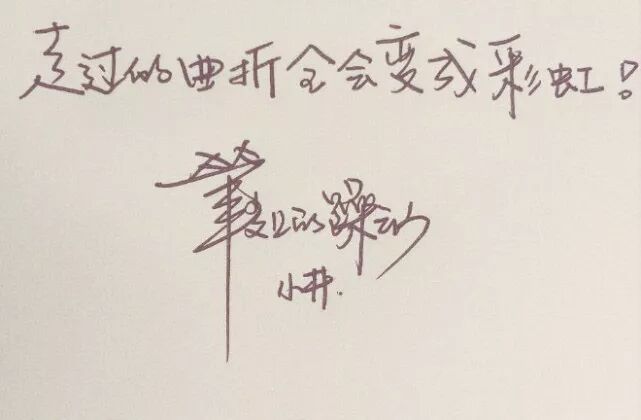 走过的曲折全会变成彩虹!
筆墨的躁动
小井.